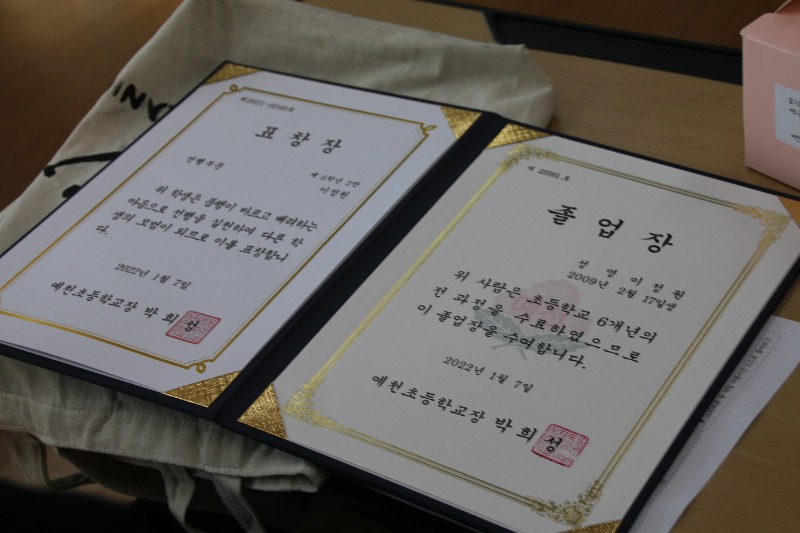 제2021-0249호
표 창 장
선행부문
제 6학년 2반
이정원
위 학생은 품행이 바르고 배려하는
마음으로 선행을 실천하여 다른 학
생의 모범이 되므로 이를 표창합니
다.
2022년 1월 7일
예천초등학교장 박 희 성
제 호
졸 업 장
성 명 이 정 원
2009년 2월 17일생
위 사람은 초등학교 6개년의
전 과정을 수료하였으므로
이 졸업장을 수여합니다.
2022년 1월 7일
예천초등학교장 박 희 성